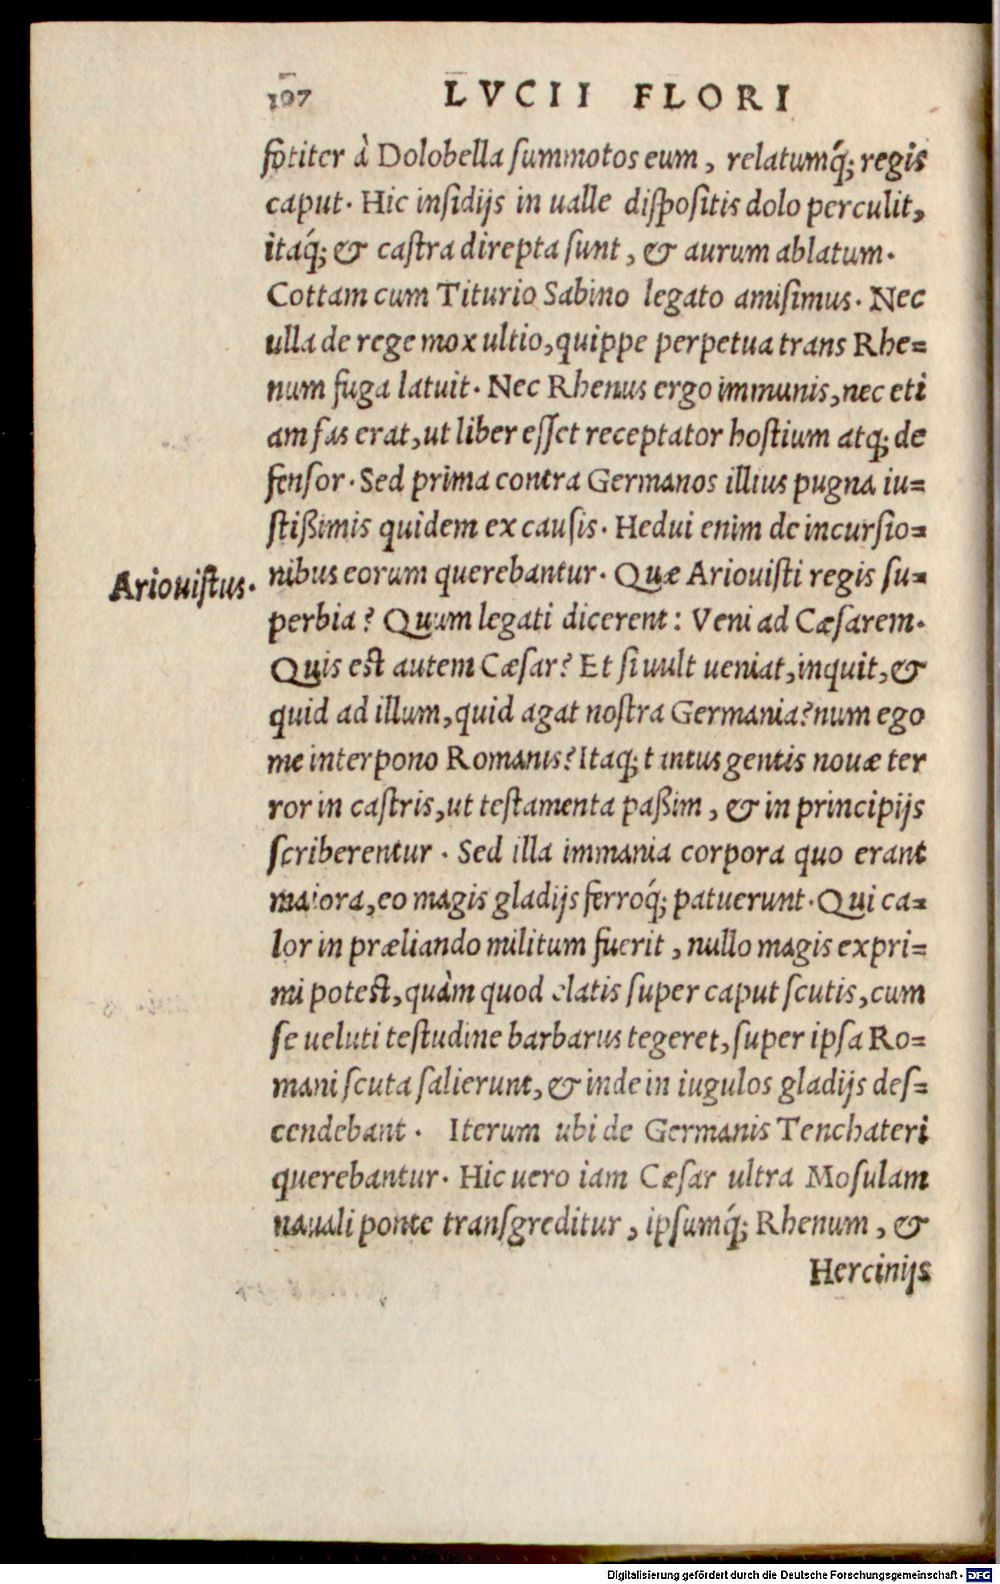 107 LVCII FLORI
fotiter à Dolobella summotos eum, relatumq́; regis
caput. Hic insidijs in ualle dispositis dolo perculit,
itaq́; & castra direpta sunt, & aurum ablatum.
Cottam cum Titurio Sabino legato amisimus. Nec
ulla de rege mox ultio, quippe perpetua trans Rhe=
num fuga latuit. Nec Rhenus ergo immunis, nec eti
am fas erat, ut liber esset receptator hostium atq; de
fensor. Sed prima contra Germanos illius pugna iu=
stißimis quidem ex causis. Hedui enim de incursio=
Ariouistus. nibus eorum querebantur. Quæ Ariouisti regis su=
perbia? Quum legati dicerent: Veni ad Cæsarem.
Quis est autem Cæsar? Et si uult ueniat, inquit, &
quid ad illum, quid agat nostra Germania? num ego
me interpono Romanis? Itaq; tantus gentis nouæ ter
ror in castris, ut testamenta paßim, & in principijs
scriberentur. Sed illa immania corpora quo erant
maiora, eo magis gladijs ferroq́; patuerunt. Qui ca=
lor in præliando militum fuerit, nullo magis expri=
mi potest, quàm quod elatis super caput scutis, cum
se ueluti testudine barbarus tegeret, super ipsa Ro=
mani scuta salierunt, & inde in iugulos gladijs des=
cendebant. Iterum ubi de Germanis Tenchateri
querebantur. Hic uero iam Cæsar ultra Mosulam
nauali ponte transgreditur, ipsumq́; Rhenum, &
Hercinijs
Digitalisierung gefördert durch die Deutsche Forschungsgemeinschaft - DFG